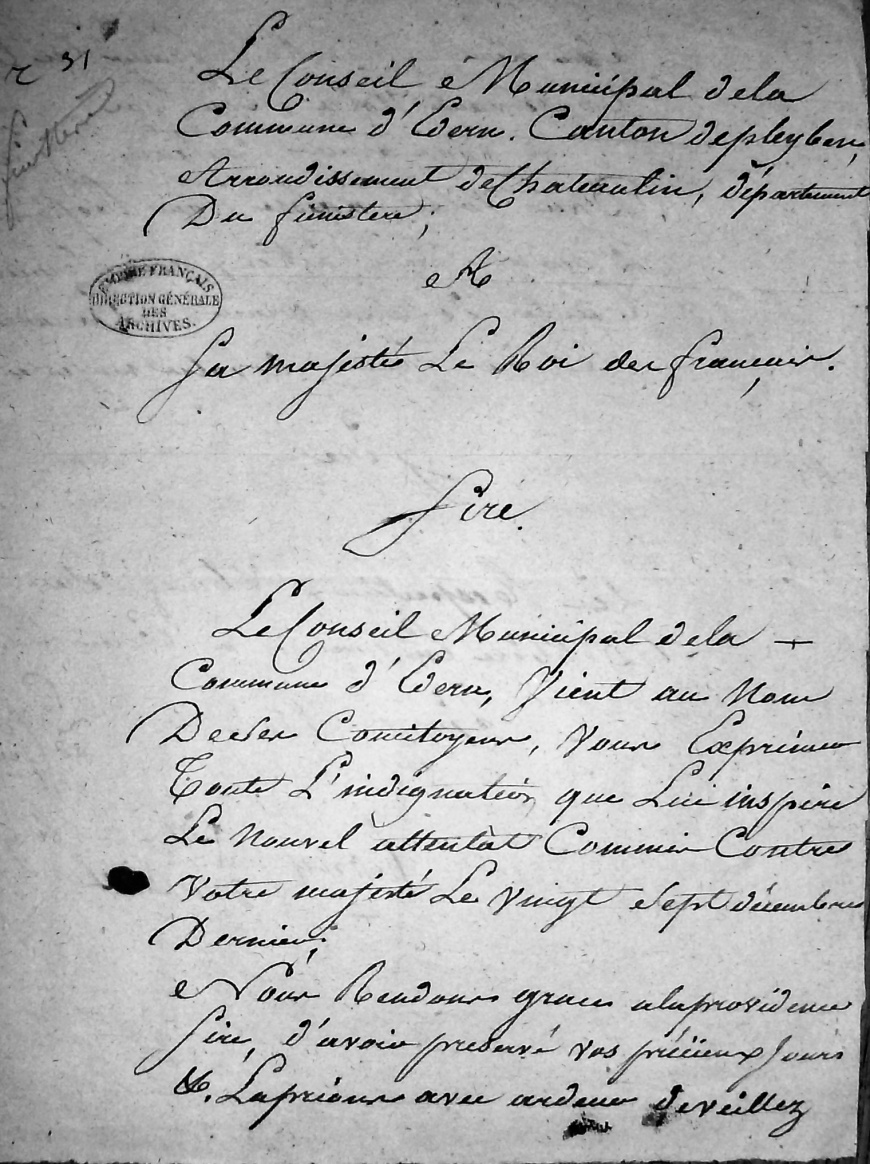 31
finistère
Le Conseil Municipal de la
Commune d'Edern. Canton de pleyben,
Arrondissement de Chateaulin, département
Du finistere;
A
Sa majesté Le Roi des français.
EMPIRE FRANÇAIS
DIRECTION GÉNÉRALE
DES
ARCHIVES.
Sire.
Le Conseil Municipal de la
Commune d'Edern, Vient au Nom
De ses Concitoyens, Vous Exprimer
Toute L'indignation que Lui inspire
Le Nouvel attentat Commis Contre
Votre majesté Le Vingt Sept décembre
Dernier;
Nous Rendons grace a la providence
Sire, d'avoir preservé vos précieux Jours
&. La prions avec ardeur de veillez